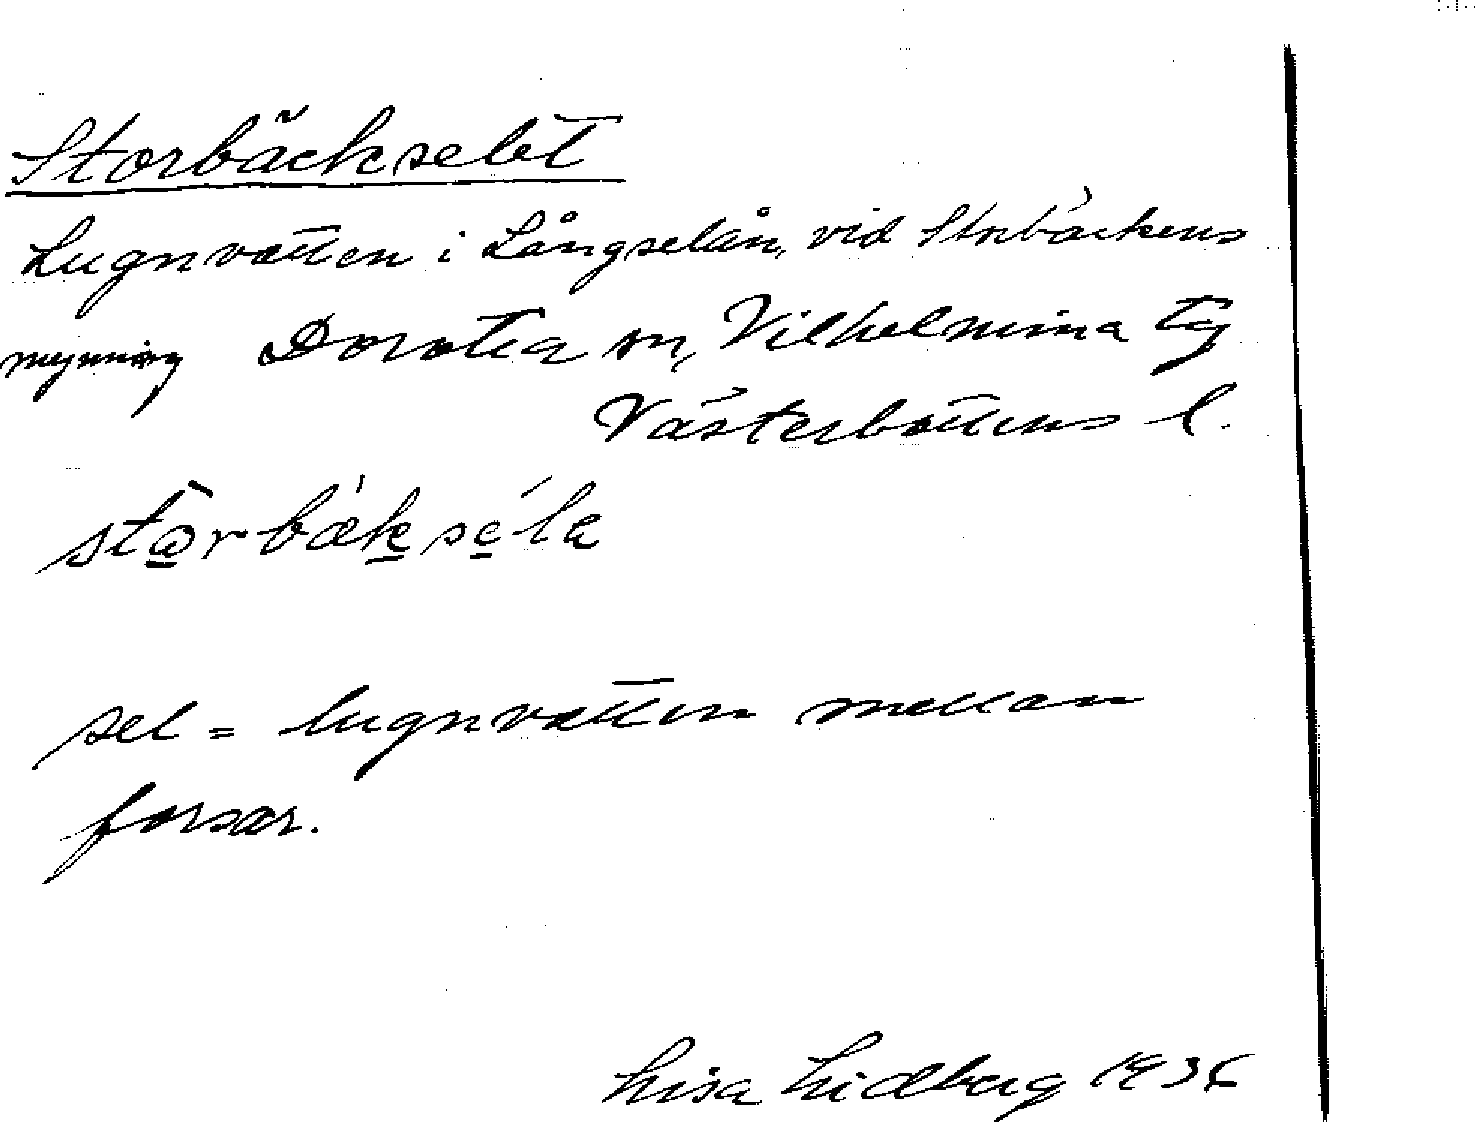 Storbäckselet
Lugnvatten i Långselån, vid Storbäckens
mynning Dorotea sn, Vilhelmina tg
Västerbottens l.
stò̲rbækse̲la
sel = lugnvatten mellan
forsar.
Lisa Lidberg 1936